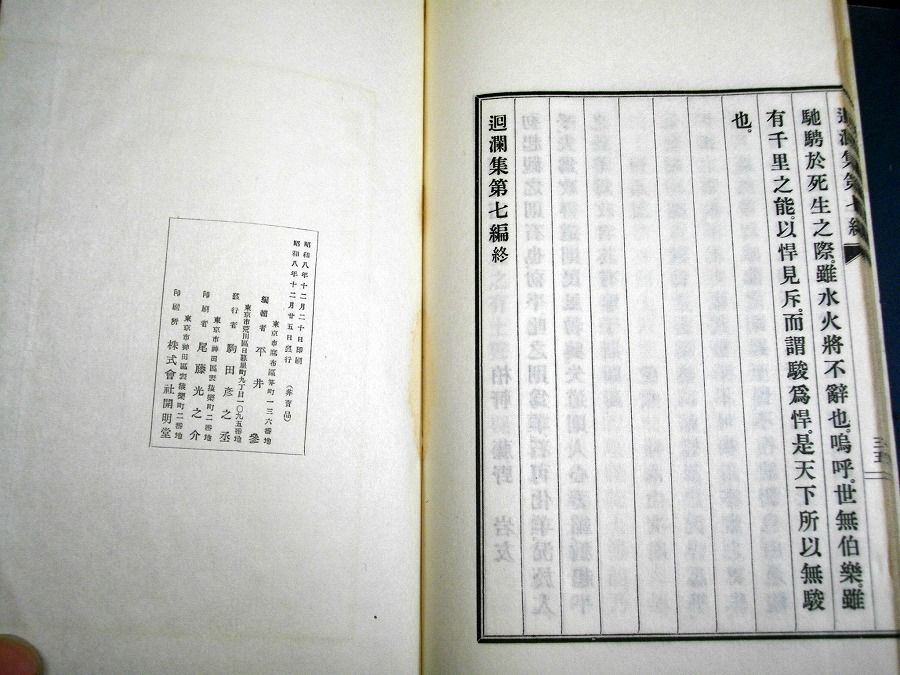 迴瀾集第七編
馳騁於死生之際。雖水火將不辭也。嗚呼。世無伯樂。雖
有千里之能。以悍見斥。而謂駿爲悍。是天下所以無駿
也。
迴瀾集第七編終
三五
昭和八年十二月二十日印刷
昭和八年十二月廿五日發行
(非賣品)
東京市麻布區笄町一三六番地
編輯者 平井參
東京市荒川區日暮里町九丁目一〇九五番地
發行者 駒田彦之丞
東京市神田區雲猿樂町二番地
印刷者 尾藤光之介
東京市神田區雲猿樂町二番地
印刷所 株式會社開明堂